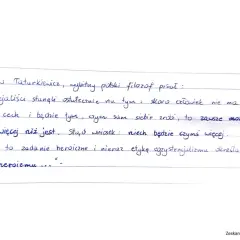 w Tatarkiewicz, wybitny polski filozof pisał:
stanęli ostatecznie na tym, skoro człowiek nie ma
cech i będzie tym, czym sam siebie zrobi, to zawsze może
więcej niż jest. Stąd wniosek: niech będzie czymś więcej.
to zadanie heroiczne i nieraz etykę egzystencjalizmu określa
heroizmu ..."-
Zeskan